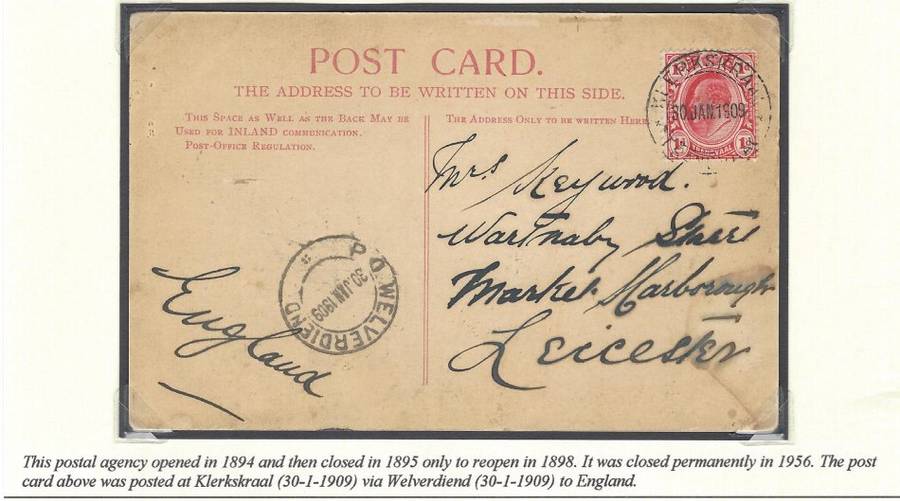 POST CARD.
THE ADDRESS TO BE WRITTEN ON THIS SIDE.
THIS SPACE AS WELL AS THE BACK MAY BE
USED FOR INLAND COMMUNICATION.
POST-OFFICE REGULATION.
THE ADDRESS ONLY TO BE WRITTEN HERE
KLERKSKRAAL
30 JAN 1909
1d 1d
Mrs Keywood.
Wartnaby Street
Market Harborough
Leicester
England
P.O. WELVERDIEND
30 JAN 1909
This postal agency opened in 1894 and then closed in 1895 only to reopen in 1898. It was closed permanently in 1956. The post
card above was posted at Klerkskraal (30-1-1909) via Welverdiend (30-1-1909) to England.